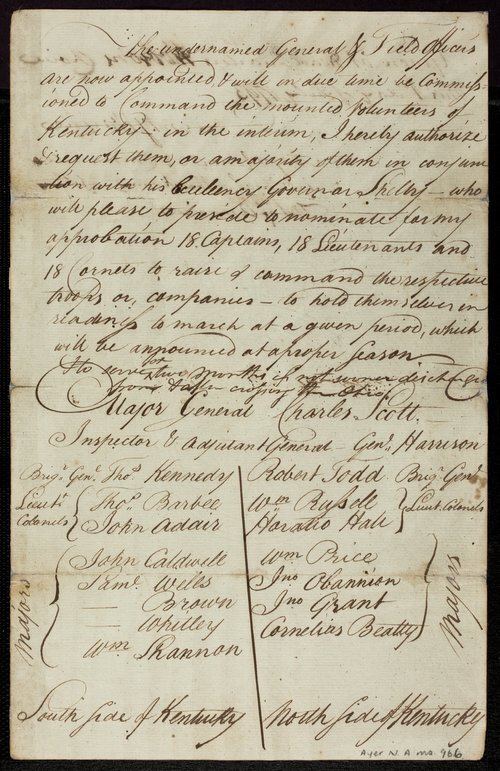 The undernamed General & Field Officers
are now appointed & will in due time be Commiss-
ioned to Command the mounted Volunteers of
Kentucky — in the interim, I hereby authorize
& request them, or a majority of them in conjunc
tion with his Excellency Governor Shelby — who
will please to preside to nominate for my
approbation 18 Captains, 18 Lieutenants and
18 Cornets to raise & command the respective
troops or, companies — to hold themselves in
readiness to march at a given period, which
will be announced at a proper season —
to serve months if not sooner discharged
after crossing the Ohio
Major General Charles Scott —
Inspector & Adjutant General — Genl. Harrison
Brigr. Genl. Thos. Kennedy
Lieut. Colonels
Thos. Barbee
John Adair
Majors
John Caldwell
Saml. Wiles
— Brown
— Whitley
Wm Shannon
South side of Kentucky
Robert Todd Brigr. Genl.
Wm Russell
Horatio Hall
Lieut. Colonels
Wm Price
Jno Obannion
Jno Grant
Cornelias Beatty
Majors
North side of Kentucky
Ayer N. A ms. 966